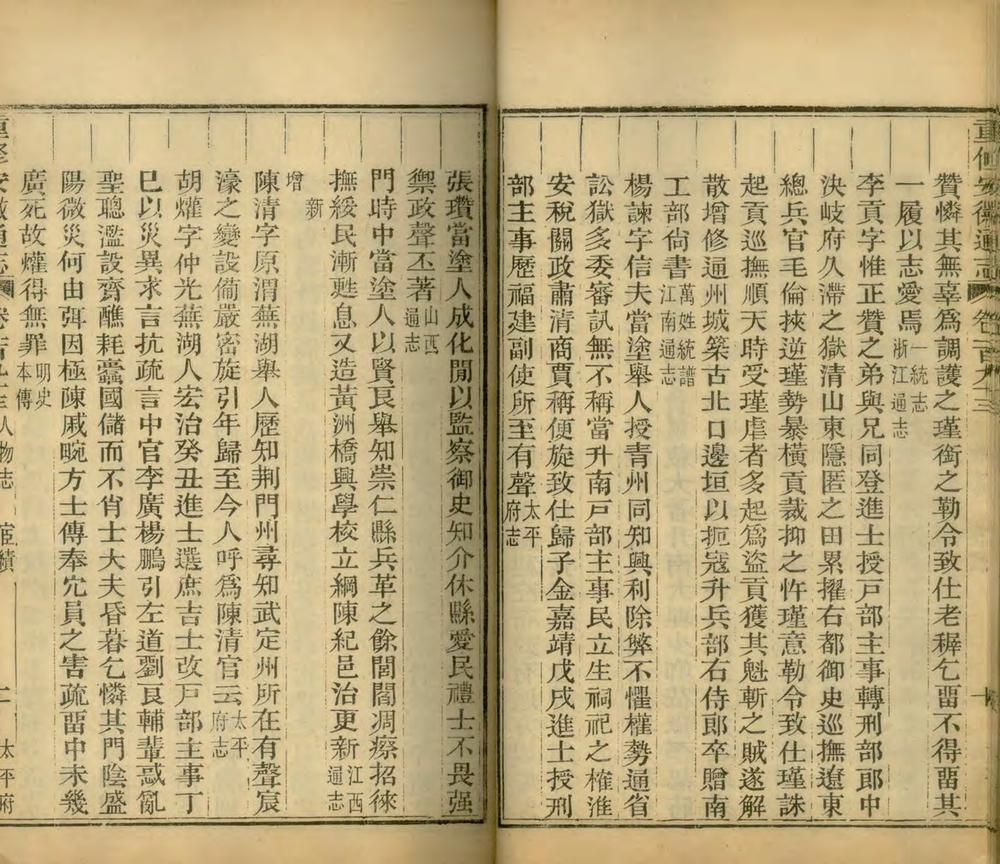 重修安徽通志 卷一百九三
贊憐其無辜爲調護之瑾銜之勒令致仕老穉乞畱不得畱其
一履以志愛焉一統志浙江通志
李貢字惟正贊之弟與兄同登進士授戸部主事轉刑部郎中
決岐府久滯之獄清山東隱匿之田累擢右都御史巡撫遼東
總兵官毛倫挾逆瑾勢暴橫貢裁抑之忤瑾意勒令致仕瑾誅
起貢巡撫順天時受瑾虐者多起爲盜貢獲其魁斬之賊遂解
散增修通州城築古北口邊垣以扼寇升兵部右侍郎卒贈南
工部尙書萬姓統譜江南通志
楊諫字信夫當塗舉人授青州同知興利除弊不懼權勢通省
訟獄多委審訊無不稱當升南戸部主事民立生祠祀之榷淮
安稅關政肅清商賈稱便旋致仕歸子金嘉靖戊戌進士授刑
部主事歷福建副使所至有聲太平府志
張瓚當塗人成化閒以監察御史知介休縣愛民禮士不畏强
禦政聲丕著山西通志
門時中當塗人以賢良舉知崇仁縣兵革之餘閭閻凋瘵招徠
撫綏民漸甦息又造黃洲橋興學校立綱陳紀邑治更新江西通志
新增
陳清字原渭蕪湖舉人歷知荆門州尋知武定州所在有聲宸
濠之變設備嚴密旋引年歸至今人呼爲陳清官云太平府志
胡爟字仲光蕪湖人宏治癸丑進士選庶吉士改戸部主事丁
巳以災異求言抗疏言中官李廣楊鵬引左道劉良輔輩惑亂
聖聰濫設齋醮耗蠹國儲而不肖士大夫昏暮乞憐其門陰盛
陽微災何由弭因極陳戚畹方士傳奉宂員之害疏畱中未幾
廣死故爟得無罪明史本傳
重修安徽通志 人物志 宦績 二 太平府